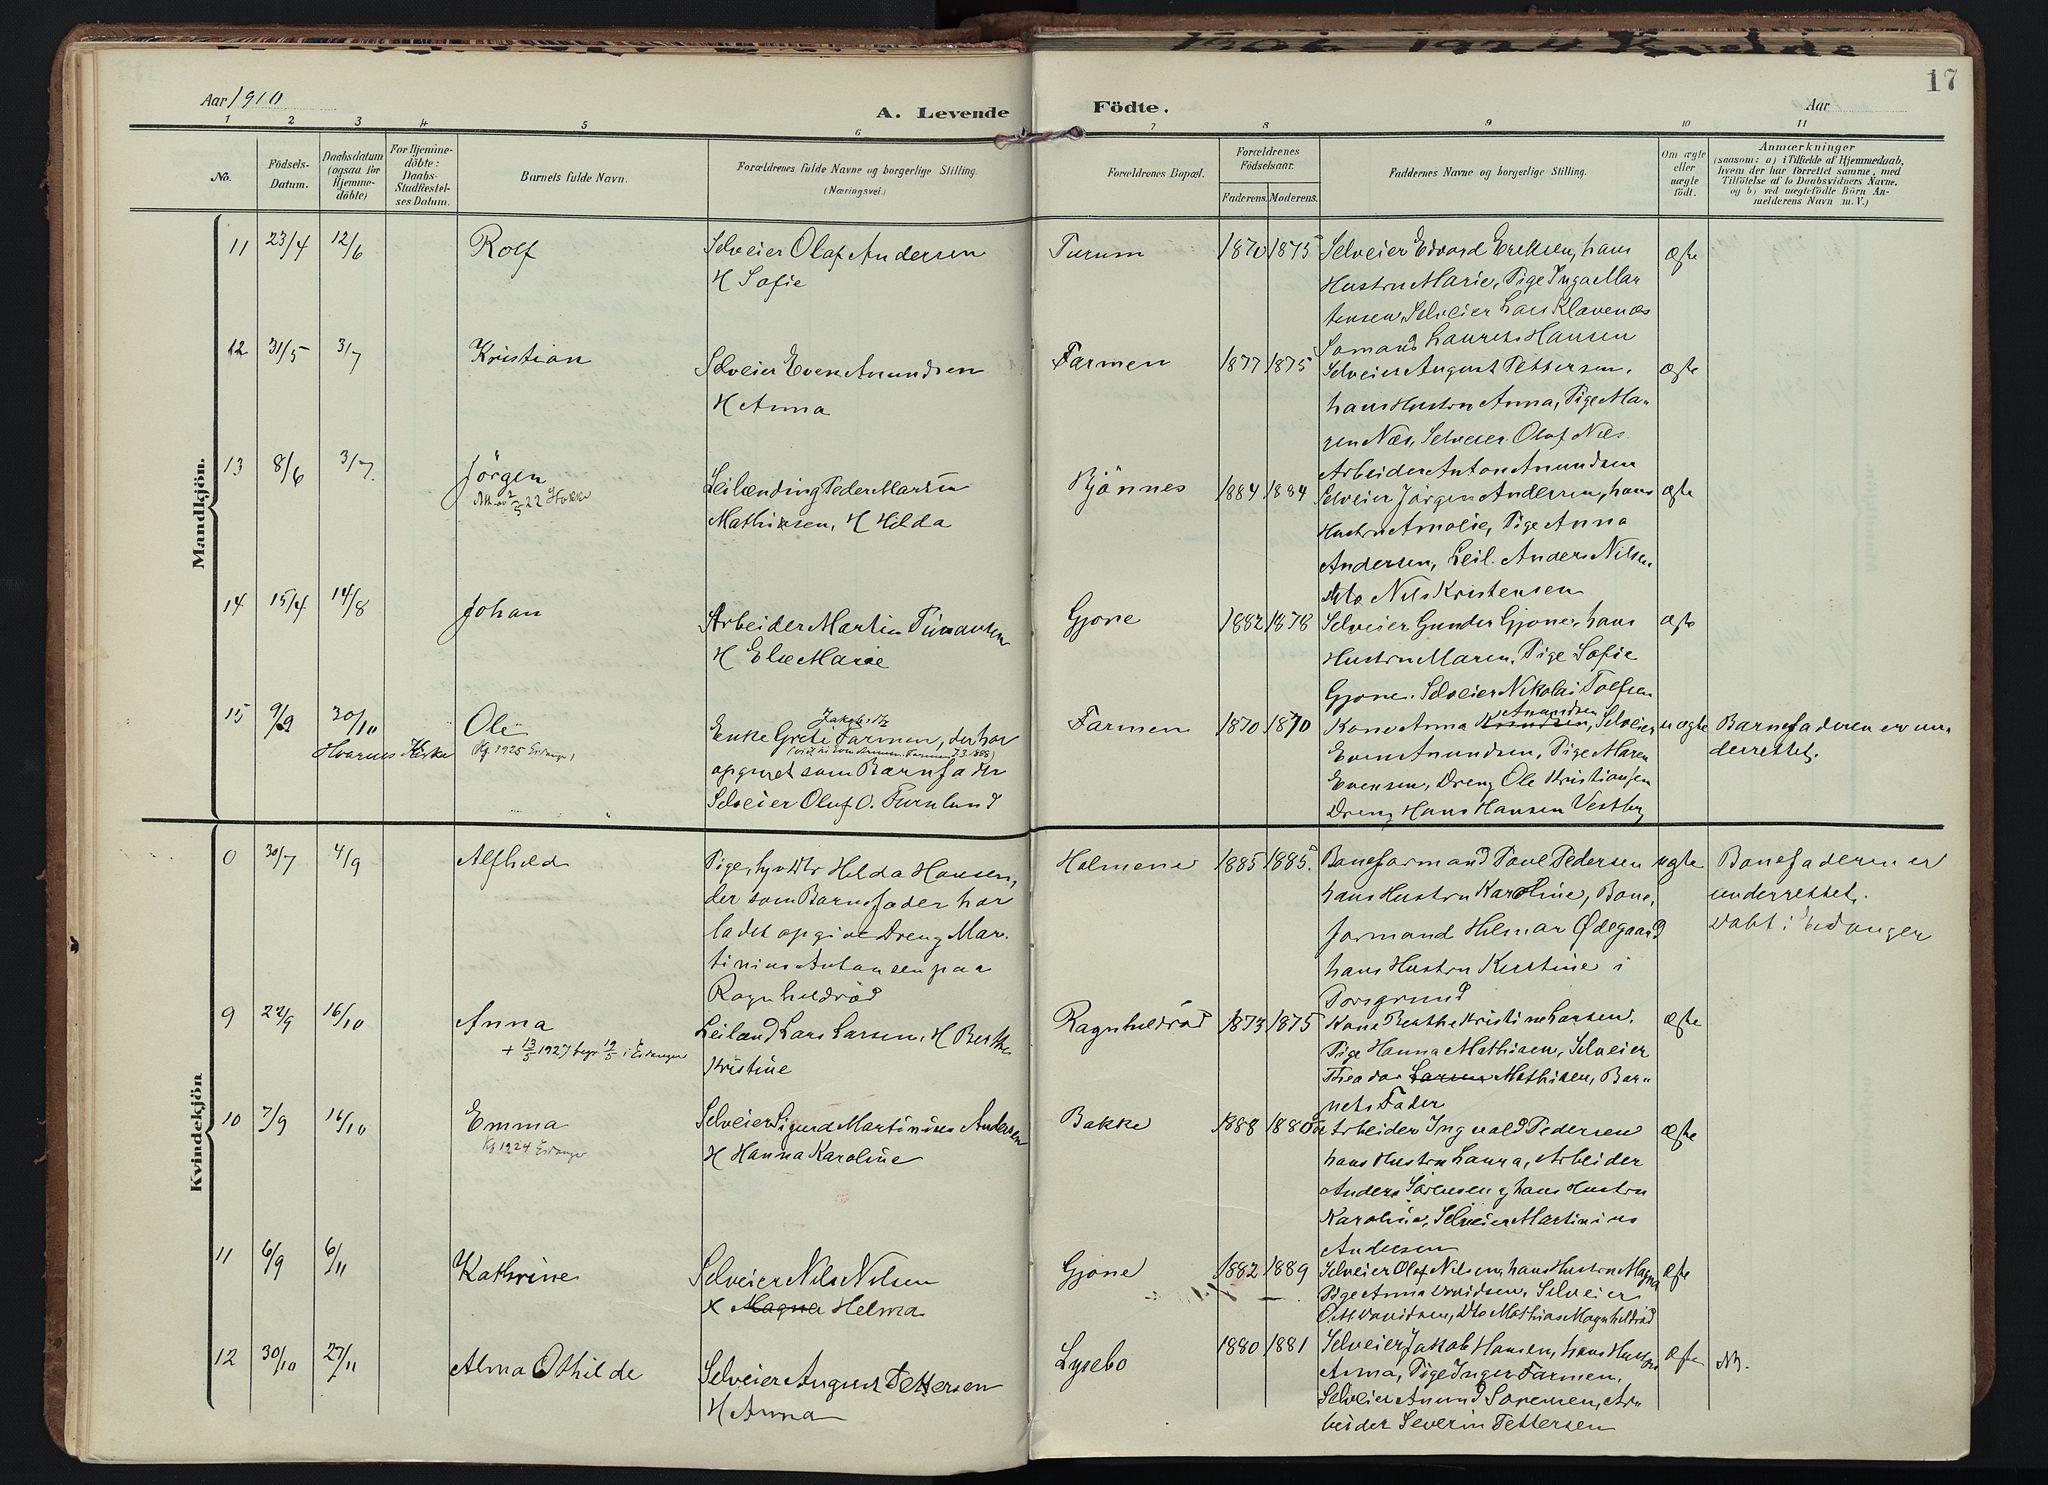 1906 - 1924 Kvelde
17
Aar 1910.
A. Levende Födte.
Aar
1 2 3 4 5 6 7 8 9 10 11
No.
Födsels-
Datum.
Daabsdatum
(ogsaa for
Hjemme-
döbte)
For Hjemme-
döbte:
Daabs-
Stadfestel-
ses Datum.
Barnets fulde Navn.
Forældrenes fulde Navne og borgerlige Stilling.
(Næringsvei.)
Forældrenes Bopæl.
Forældrenes
Födselsaar.
Faderens. Moderens.
Faddernes Navne og borgerlige Stilling.
Om ægte
eller
uægte
födt.
Anmærkninger
(saasom: a) i Tilfælde af Hjemmedaab,
hvem der har forrettet samme, med
Tilföielse af to Daabsvidners Navne,
og b) ved uægtefödte Börn An-
melderens Navn m. V.)
Mandkjön.
11 23/4 12/6 Rolf Selveier Olaf Andersen Furum 1870 1875 Selveier Edvard Eriksen, hans ægte
H Sofie Hustru Marie, Pige Inga Mar
tensen, Selveier Lars Klavenæs
Sømand Laurits Hansen
12 31/5 3/7 Kristian Selveier Even Anundsen Farmen 1877 1875 Selveier August Pettersen, ægte
H Anna hans Hustru Anna, Pige Ma-
ren Næs, Selveier Olaf Næs.
Arbeider Anton Anundsen
13 8/6 3/7. Jörgen Leilænding Peder Martin Bjönnes 1884 1884 Selveier Jörgen Andersen, hans ægte
Mathisen, H Hilda Hustru Amalie, Pige Anna
Andersen, Leil. Anders Nilsen
dito Nils Kristensen
14 15/4 14/8 Johan Arbeider Martin Gjone 1882 1878 Selveier Gunder Gjone, hans ægte
H Else Marie Hustru Maren, Pige Sofie
Gjone, Selveier Nikolai Tolfsen
15 9/9 30/10 Ole Enke Farmen, der har Farmen 1870 1870 Kone Anna Anundsen, Selveier uægte Barnefaderen er un-
Hvarnes Kirke Kf. 1925 Eidanger Even Anundsen, Pige Maren derrettet.
opgivet som Barnefader Evensen, Dreng Ole Kristiansen
Selveier Oluf O. Furulund Dreng Hans Hansen Vestby
Kvindekjön
0 30/7 4/9 Alfhild Pige, Hilda Hansen, Holmene 1885 1885. Baneformand Povl Pedersen uægte Barnefaderen er
der som Barnefader har hans Hustru Karoline, Bane- underrettet.
ladet opgive Dreng Mar- formand Hilmar Ødegaard Döbt i Eidanger
tinius Antonsen paa hans Hustru Kirstine i
Ragnhildröd Porsgrund
9 22/9 16/10 Anna Leilænd Lars Larsen, H Berthe Ragnhildröd 1873 1875 Kone Berthe Kristine Larsen, ægte
+ 13/5 1927 begr 19/5 i Eidanger Kristine Pige Hanna Mathisen, Selveier
Theodor Larsen Mathisen, Bar-
nets Fader
10 7/9 16/10 Emma Selveier Sigurd Martinius Andersen Bakke 1888 1880 Arbeider Ingvald Pedersen ægte
Kf 1924 Eidanger H Hanna Karoline hans Hustru Laura, Arbeider
Anders Sörensen og hans Hustru
Karoline, Selveier Martinius
Andersen
11 6/9 6/11 Kathrine Selveier Nils Nilsen Gjone 1882 1889 Selveier Olaf Nilsen, hans Hustru Magna ægte
H Magna Helma Pige Anna Davidsen, Selveier
O. M. Davidsen, Dto Mathias Magnhildröd
12 30/10 27/11 Alma Othilde Selveier August Pettersen Lysebo 1880 1881 Selveier Jakob Hansen, hans Hustru ægte
H Anna Anna, Pige Inger Farmen,
Selveier Anund Sörensen, Ar-
beider Severin Pettersen